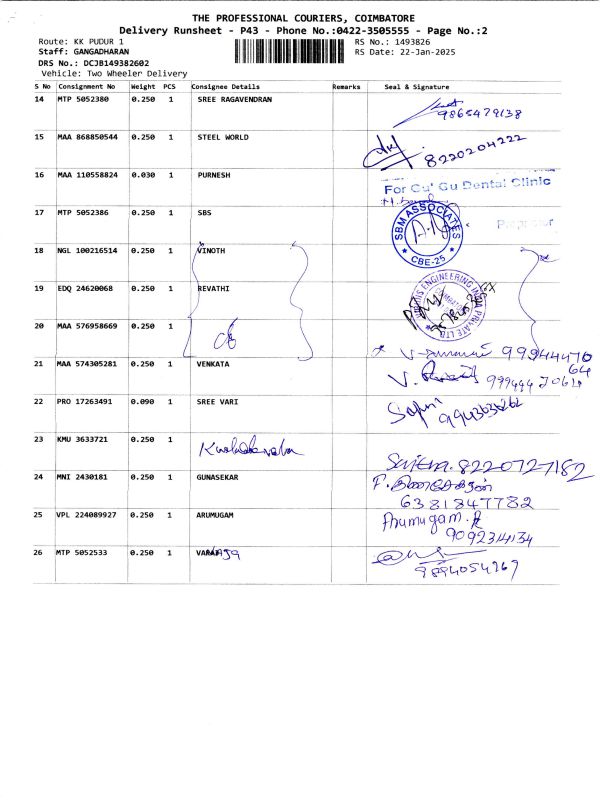 THE PROFESSIONAL COURIERS, COIMBATORE
Delivery Runsheet - P43 - Phone No.:0422-3505555 - Page No.:2
Route: KK PUDUR 1 RS No.: 1493826
Staff: GANGADHARAN RS Date: 22-Jan-2025
DRS No.: DCJB149382602
Vehicle: Two Wheeler Delivery
S No Consignment No Weight PCS Consignee Details Remarks Seal & Signature
14 MTP 5052380 0.250 1 SREE RAGAVENDRAN
9865479138
15 MAA 868850544 0.250 1 STEEL WORLD
8220204222
16 MAA 110558824 0.030 1 PURNESH
For Cu' Gu Dental Clinic
17 MTP 5052386 0.250 1 SBS
SBM ASSOCIATES
CBE-25
18 NGL 100216514 0.250 1 VINOTH
19 EDQ 24620068 0.250 1 REVATHI
20 MAA 576958669 0.250 1
21 MAA 574305281 0.250 1 VENKATA
22 PRO 17263491 0.090 1 SREE VARI
23 KMU 3633721 0.250 1
8220727182
24 MNI 2430181 0.250 1 GUNASEKAR
6381847782
25 VPL 224089927 0.250 1 ARUMUGAM
Arumugam. R
9092314134
26 MTP 5052533 0.250 1